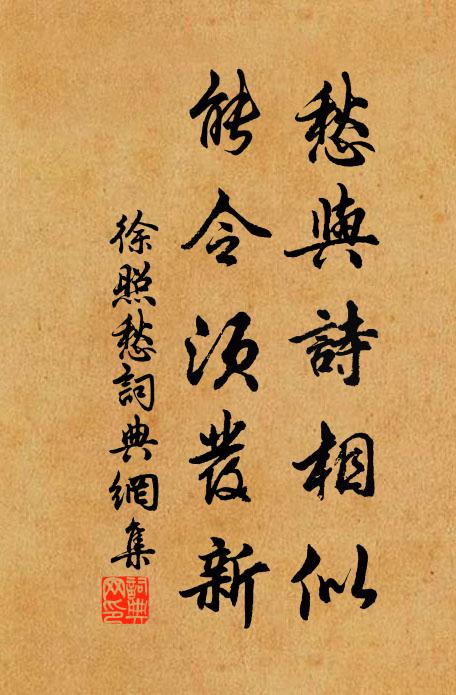 愁與詩相似
能令須發新
徐照愁詞典網集
詞典网印